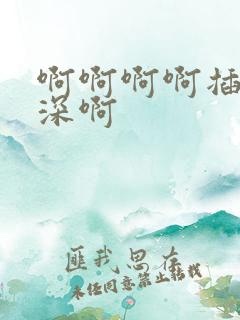 啊啊啊啊插
深啊
匪我思存
未经同意禁止转载